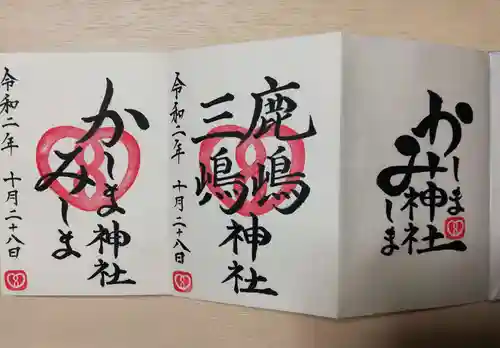 かしま
みしま
神社
令和二年 十月二十八日
鹿嶋
三嶋
神社
令和二年 十月二十八日
かしま
みしま
神社